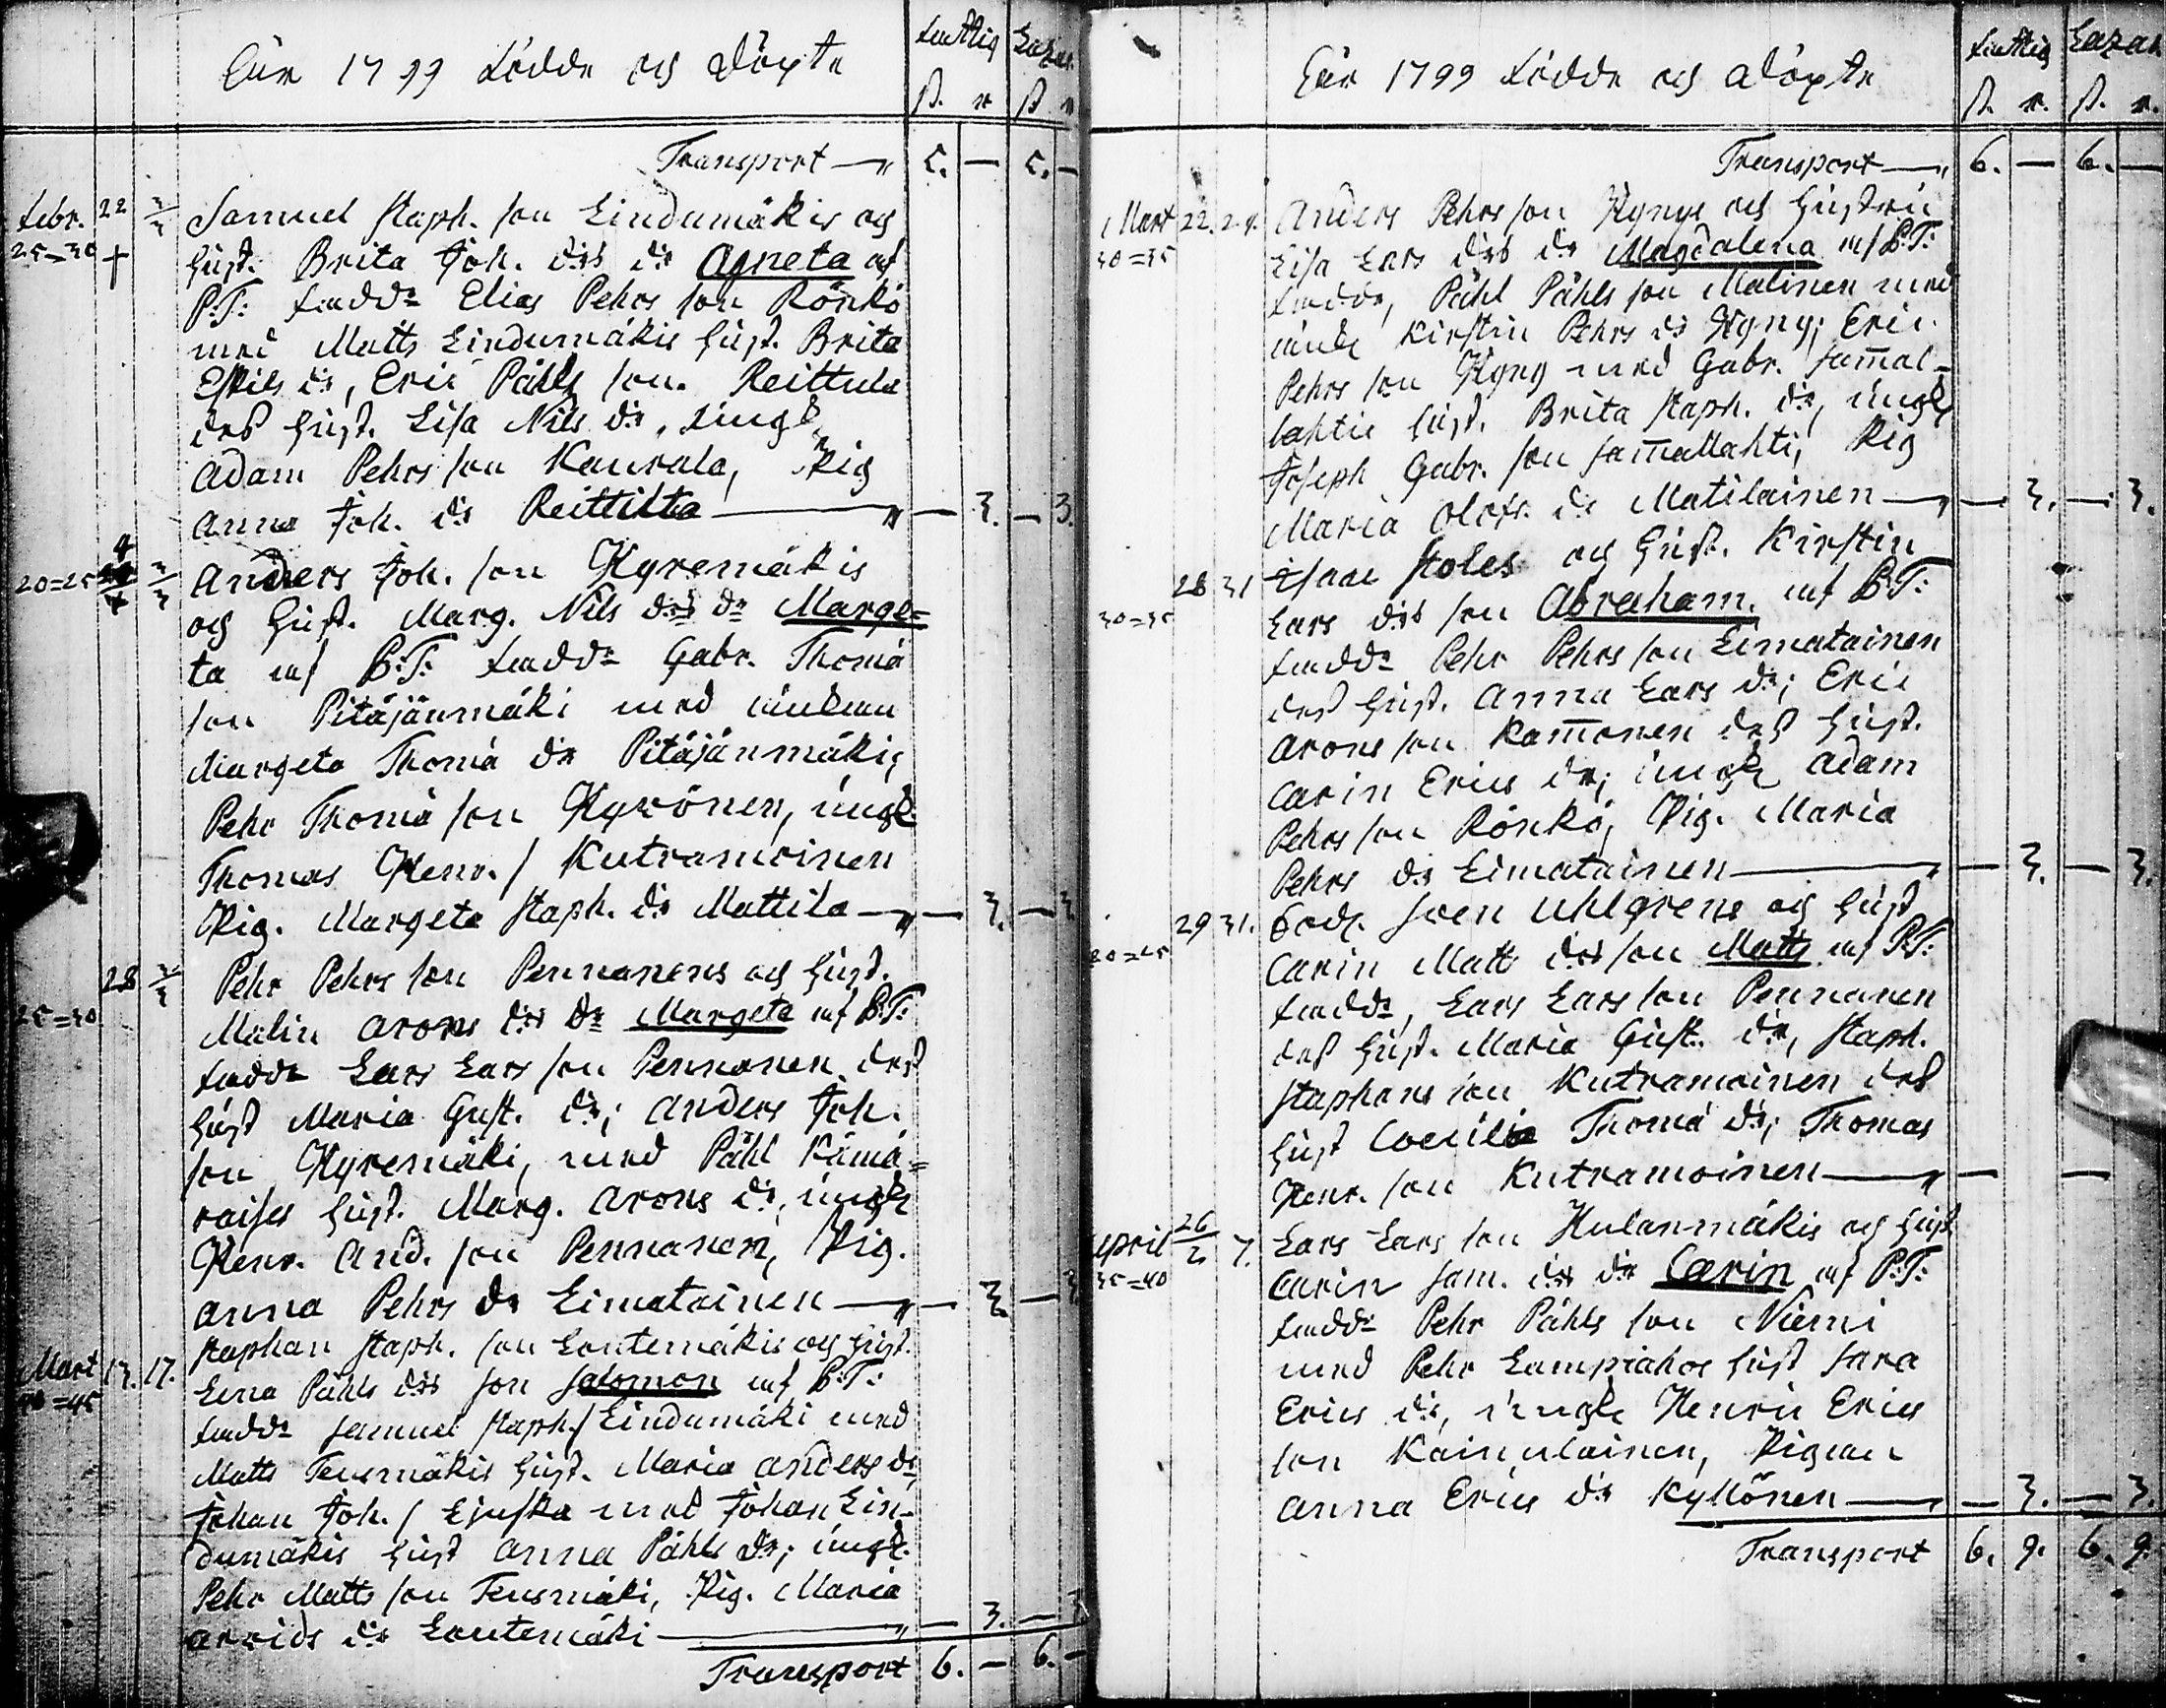 År 1799 födde och döpte
fattig Lazar.
ß. r ß r
Transport — 5. — 5. —
Febr. 22 2/3 Samuel Staph. son Lindumäkis och
25=30 + hust. Brita Joh. dtrs dr Agneta af
B.T: fadd: Elias Pehrs son Rönkö
med Matts Lindumäkis hust. Brita
Eskils dr, Eric Påhls son Reittula
dess hust. Lisa Nils dr, ungk
Adam Pehrs son Kaurala, Pig
Anna Joh. dr Reittilta — — 3. — 3.
20=25 2/3 Anders Joh. son Hyremäkis
och hust. Marg. Nils dtrs dr Marge=
ta af B.T: fadd: Gabr. Thomæ
son Pitäjänmäki med änkan
Margeta Thomæ dr Pitäjänmäki;
Pehr Thomæ son Hyvönen, ungk.
Thomas Henr. s Kutramoinen
Pig. Margeta Staph. dr Mattila — — 3. — 3
28 2/3 Pehr Pehrs son Pennanens och hust.
25=30 Malin Arons dtrs dr Margeta af B.T:
fadd: Lars Lars son Pennanen dess
hust Maria Gust. dr; Anders Joh.
son Hyremäki, med Påhl Kämä=
räises hust. Marg. Arons dr, ungk
Henr. And. son Pennanen, Pig.
Anna Pehrs dr Limatainen — — 3. — 3
Staphan Staph. son Lontemäkis och hust.
Mart 13. 17. Lena Påhls dtrs son Salomon af B.T:
40=45 fadd: Samuel Staph. s Lindumäki med
Matts Teusmäkis hust. Maria Anders dr
Johan Joh. s Ljuska med Johan Lin-
dumäkis hust Anna Påhls dr; ungk.
Pehr Matts son Teusmäki, Pig. Maria
Arvids dr Lontemäki — — 3. — 3
Transport 6. — 6. —
År 1799 födde och döpte
fattig Lazar.
ß. r. ß. r.
Transport — 6. — 6. —
Mart 22. 24. Anders Pehrs son Hyngs och hustru
30=35 Lisa Lars dtrs dr Magdalena af B.T:
fadde, Påhl Påhls son Malinen med
änk. Kirstin Pehrs dr Hyng; Eric
Pehrs son Hyng med Gabr. Sam̄al-
lahtis hust. Brita Staph. dr, ungk
Joseph Gabr. son Sam̄allahti, Pig
Maria Olofs dr Matilainen — — 3. — 3.
28 31 Isaac Stoles och hust. Kirstin
30=35 Lars dtrs son Abraham, af B.T:
fadd: Pehr Pehrs son Limatainen
dess hust. Anna Lars dr; Eric
Arons son Kam̄onen dess hust.
Carin Erics dr; ungk Adam
Pehrs son Rönkö, Pig. Maria
Pehrs dr Limatainen — — 3. — 3.
29 31. Sven Uhlgrens och hust
20=25 Carin Matts dtrs son Matts af B.T:
fadd:, Lars Lars son Pennanen
dess hust. Maria Gust. dr, Staph.
Staphans son Kutramoinen dess
hust Coecilia Thomæ dr; Thomas
Henr. son Kutramoinen — — —
April 26/2 7. Lars Lars son Hulanmäkis och hust
35=40 Carin Sam. dtrs dr Carin af B.T:
fadd: Pehr Påhls son Niemi
med Pehr Lampiahos hust Sara
Erics dr, ungk Henric Erics
son Kainulainen, Pigan
Anna Erics dr Kyllönen — — 3. — 3.
Transport 6. 9. 6. 9.